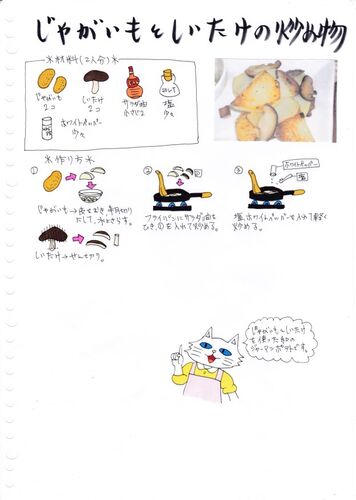 じゃがいもとしいたけの炒め物
※材料(2人分)※
じゃがいも
2コ
しいたけ
2コ
サラダ油
小さじ2
塩
少々
ホワイトペッパー
少々
※作り方※
①
じゃがいも→皮をむき、半月切り
にして、水にさらす。
しいたけ→せん切り。
②
フライパンにサラダ油を
ひき、①を入れて炒める。
③
ホワイトペッパー
塩
塩、ホワイトペッパーを入れて軽く
炒める。
じゃがいもとしいたけ
を使った和の
ジャーマンポテトです。